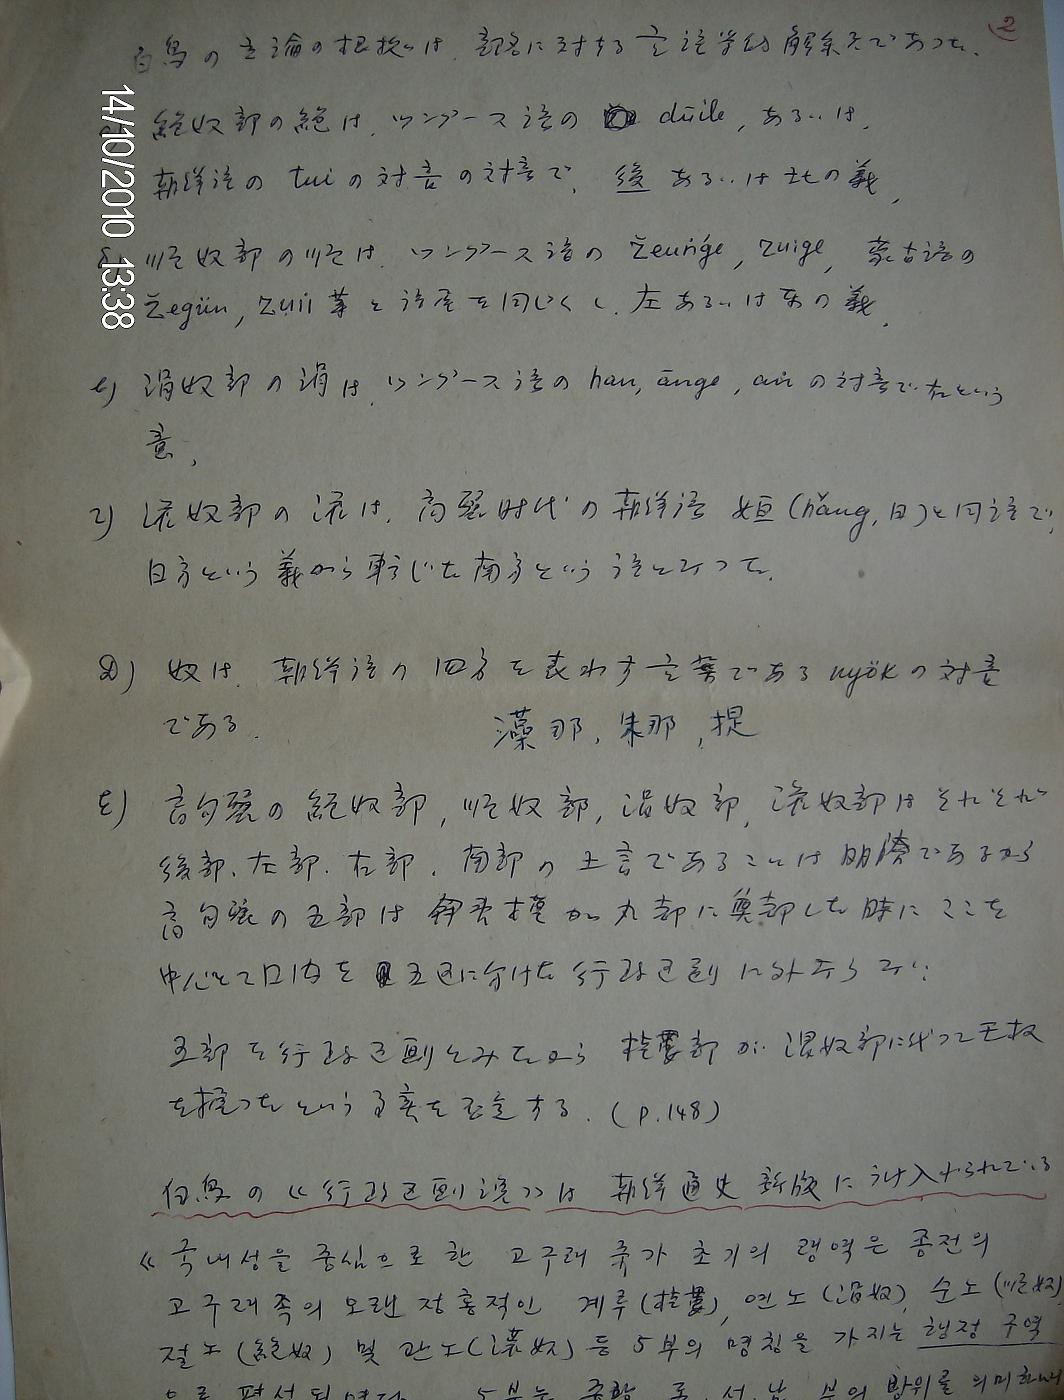 2
白鳥の立論の根拠は、部名に対する言語学的解釈であった。
14/10/2010 13:38
絶奴部の絶は、ツングース語の düile, あるいは、
朝鮮語の tui の対音の対音で、後あるいは北の義、
順奴部の順は、ツングース語の žeunge, zuige, 蒙古語の
žegün, zuii 等と語尾を同じくし、左あるいは東の義、
ㄷ) 涓奴部の涓は、ツングース語の han, ānge, の対音で右という
意、
ㄹ) 灌奴部の灌は、高麗時代の朝鮮語 姮 (hăng, 日) と同語で、
日方という義から転じた南方という語とみなった。
ㅁ) 奴は、朝鮮語の四方を表わす言葉である nyök の対音
である。
藻那, 朱那, 提
ㅂ) 高句麗の絶奴部, 順奴部, 涓奴部, 灌奴部はそれぞれ
後部、左部、右部、南部の土言であることは明瞭であるから
高句麗の五部は伊夷模が丸都に奠都した時にここを
中心として国内を五区に分けた行政区劃に外ならない:
五部を行政区劃とみたから 桂婁部が涓奴部に代って王权
を握ったという事実を否定する. (p.148)
白鳥の《行政区劃説》は朝鮮通史新版に取入れられている
《국내성을 중심으로 한 고구려 국가 초기의 령역은 종전의
고구려족의 오랜 전통적인 계루(桂婁), 연노(涓奴), 순노(順奴)
절노(絶奴) 및 관노(灌奴) 등 5부의 명칭을 가지는 행정 구역
으로 편성되였다. 5부는 중앙, 동, 서, 남, 부의 방위를 의미하며